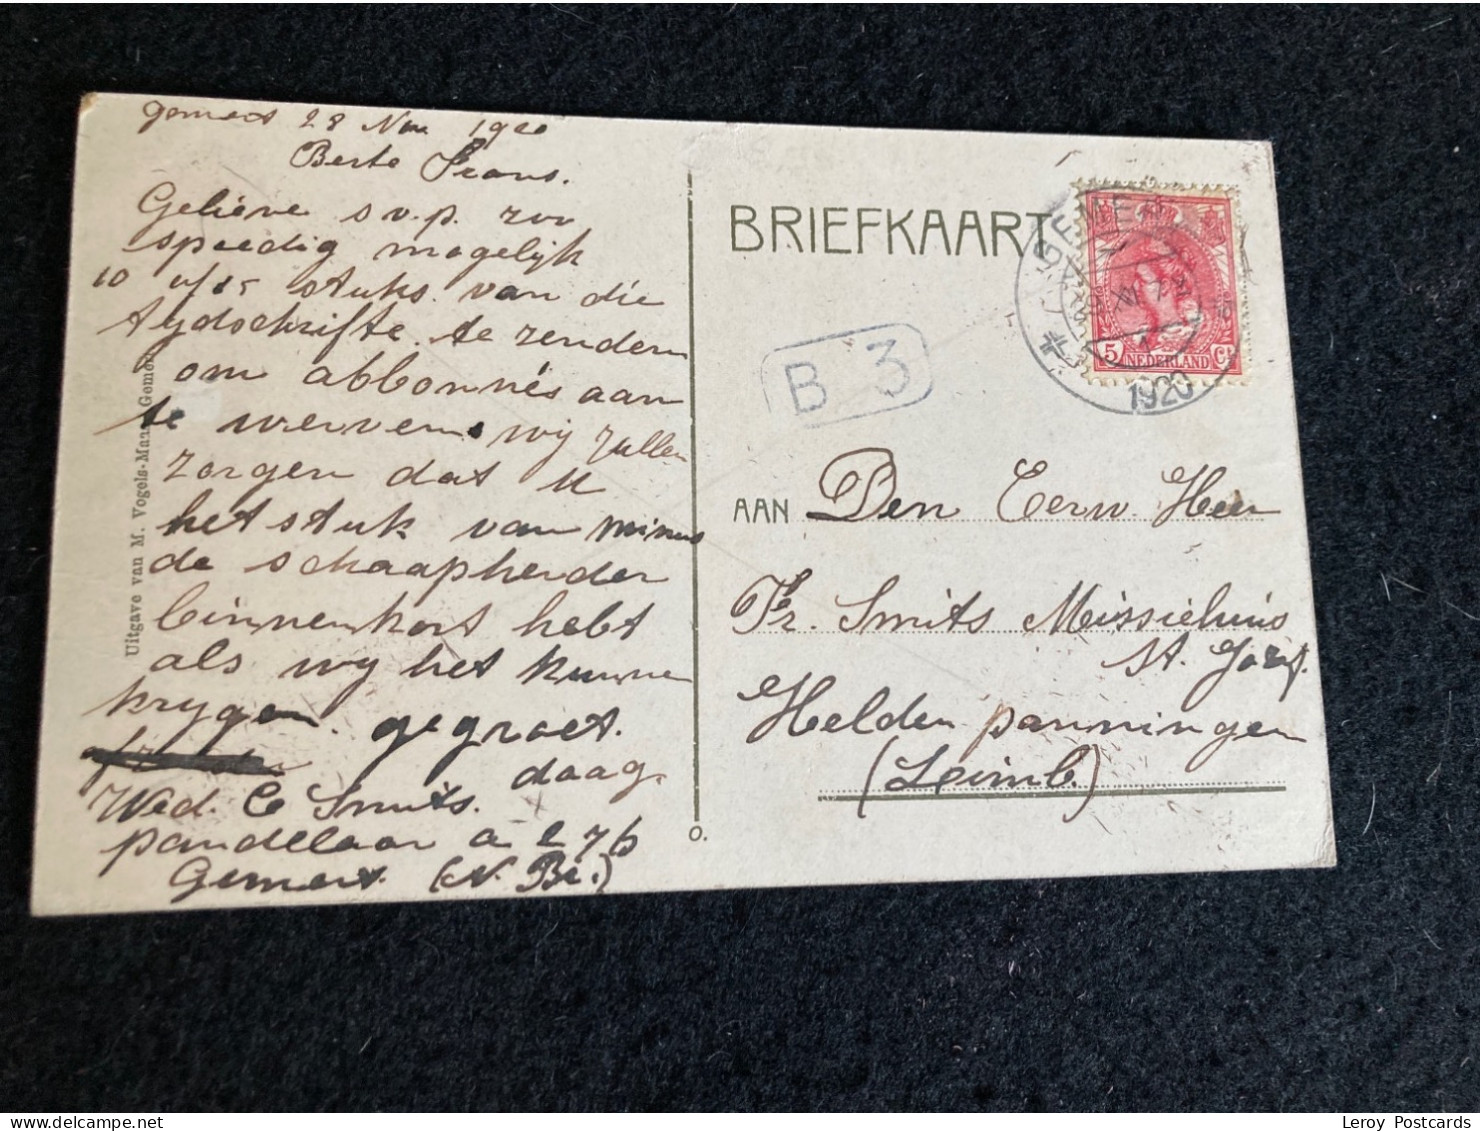 Gemert 28 Nov 1920
Beste Frans.
Geliève s.v.p. zoo
spoedig mogelijk
10 à 15 stuks van die
tydschrifte te zenden
om abbonnés aan
te werven wij zullen
zorgen dat u
het stuk van minus
de schaapherder
binnenkort hebt
als wy het kunne
krygen. gegroet.
daag.
Wed. C Smits.
pandelaar a 276
Gemert. (N. Br.)
Uitgave van M. Vogels-Maas, Gemert
BRIEFKAART
GEMERT
1920
5 NEDERLAND Ct
B 3
AAN Den Eerw. Heer
Fr. Smits Missiehuis
St. Jozef.
Helden panningen
(Limb.)
O.
Leroy Postcards
www.delcampe.net